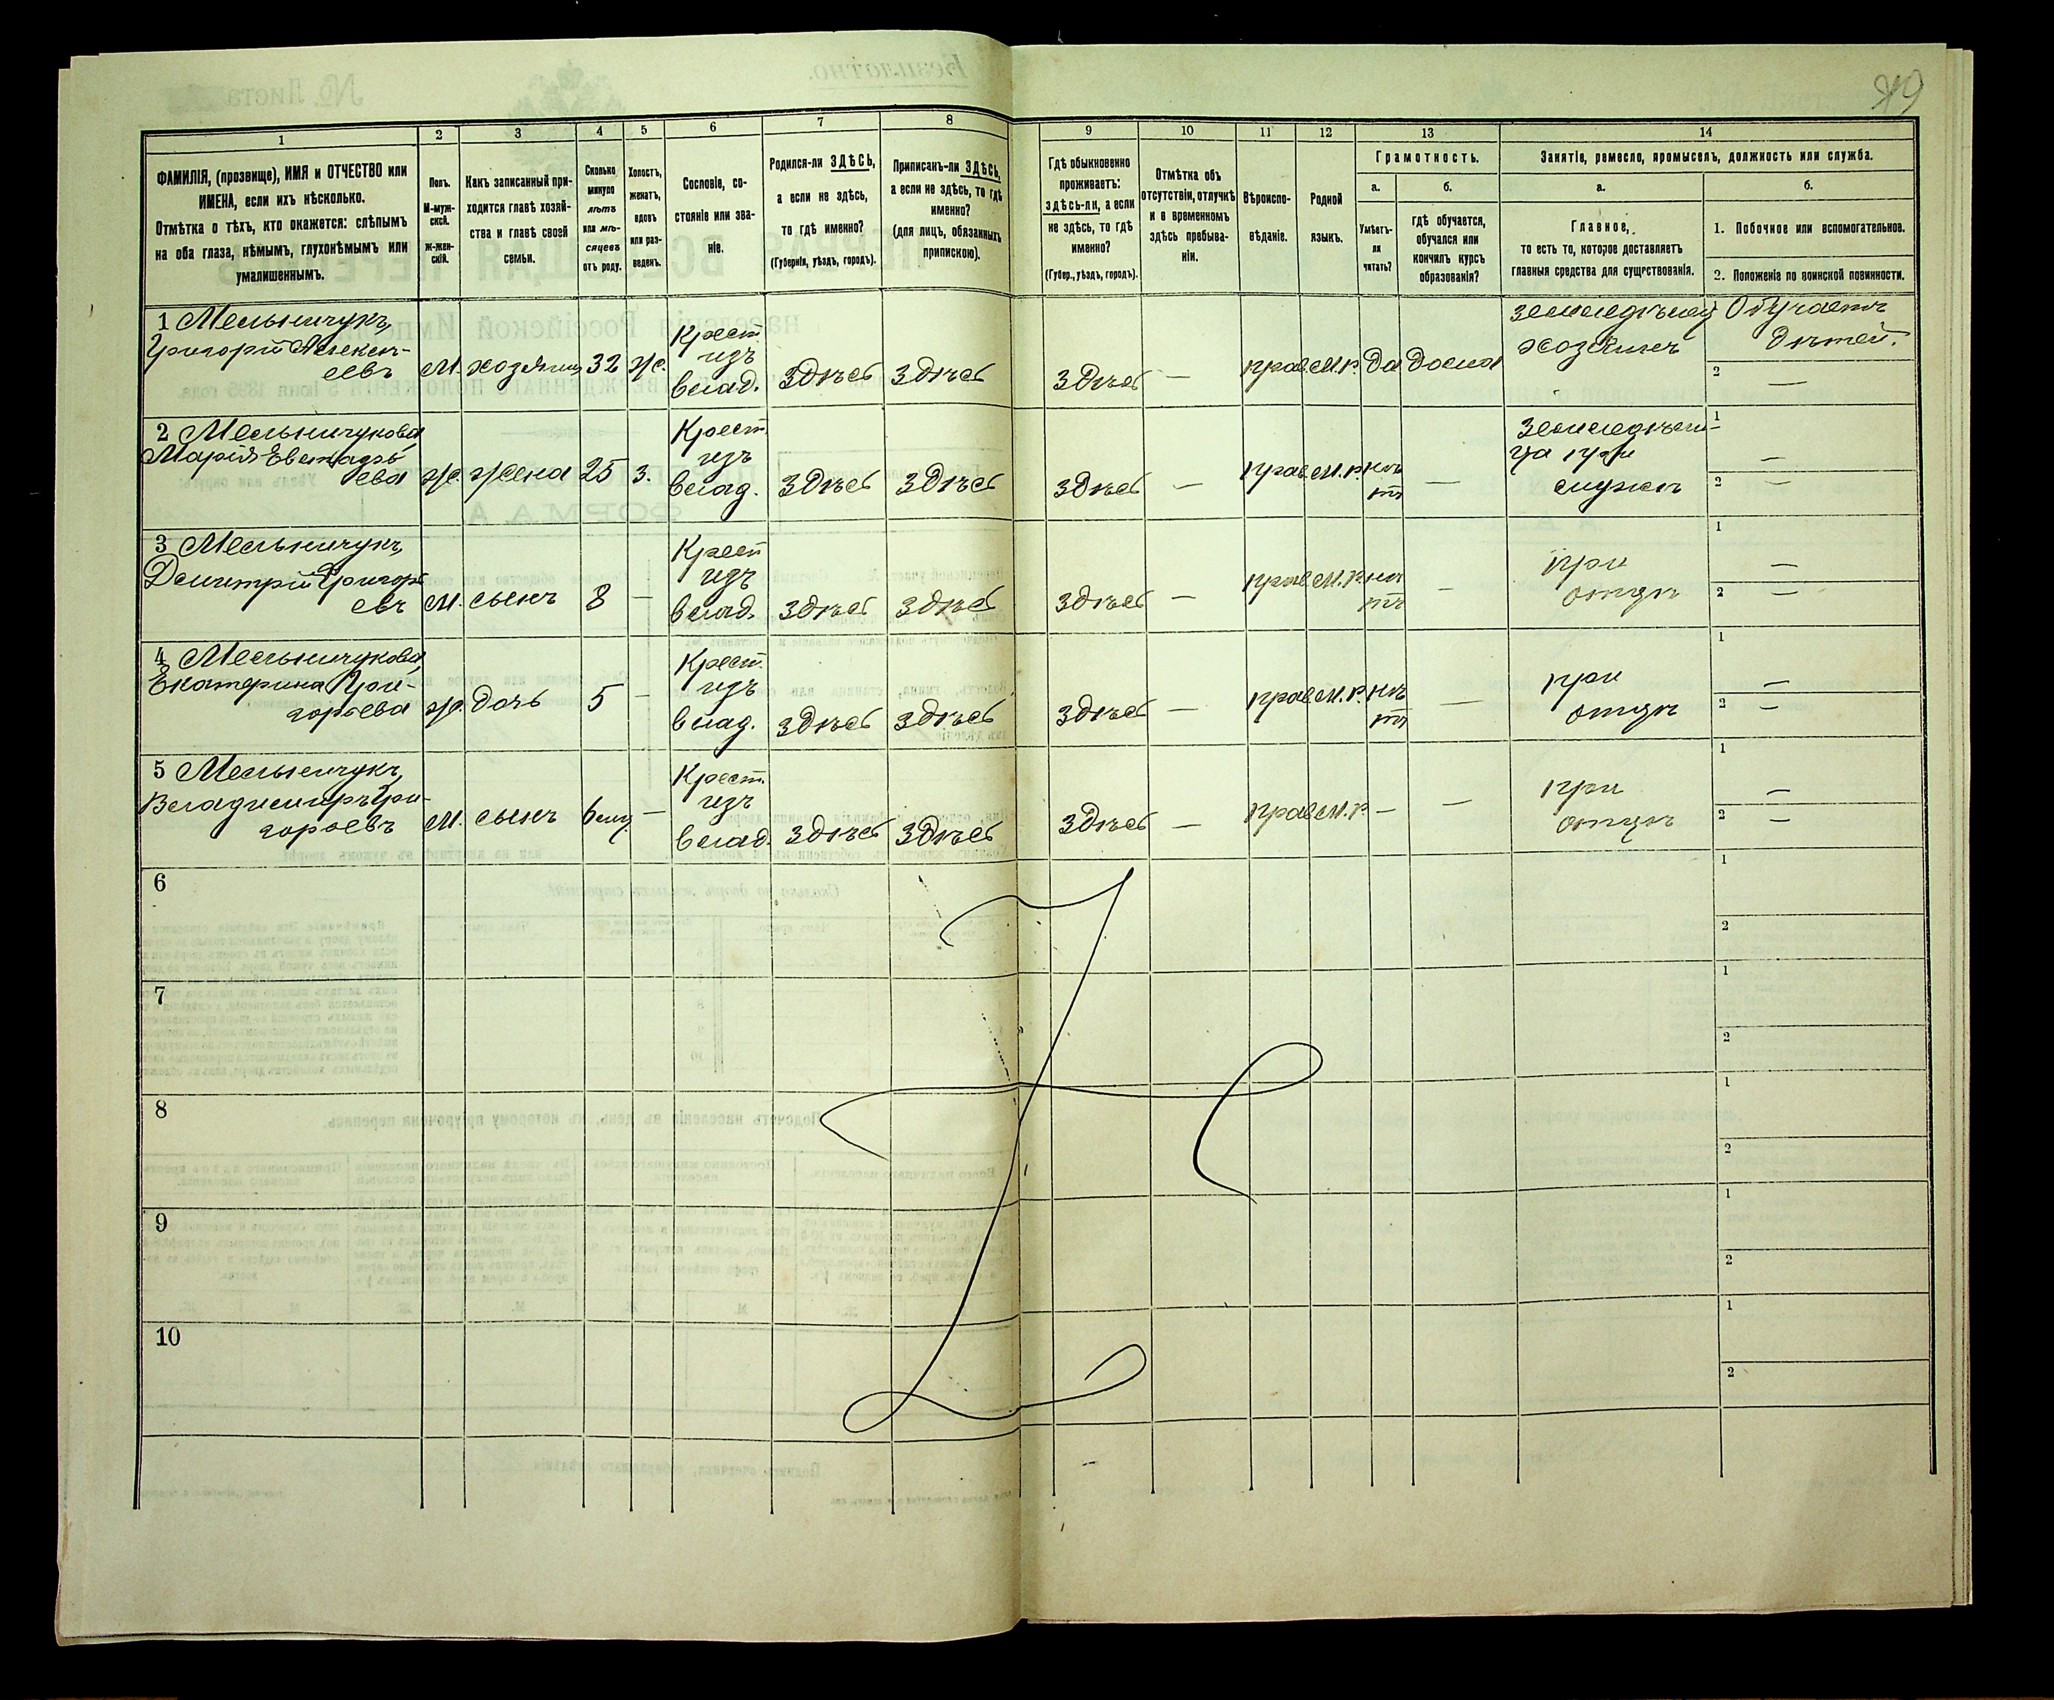 49
1 2 3 4 5 6 7 8 9 10 11 12 13 14
ФАМИЛІЯ, (прозвище), ИМЯ и ОТЧЕСТВО или
ИМЕНА, если ихъ нѣсколько.
Отмѣтка о тѣхъ, кто окажется: слѣпымъ
на оба глаза, нѣмымъ, глухонѣмымъ или
умалишеннымъ.
Полъ.
М-муж-
ской.
Ж-жен-
скій.
Какъ записанный при-
ходится главѣ хозяй-
ства и главѣ своей
семьи.
Сколько
минуло
лѣтъ
или мѣ-
сяцевъ
отъ роду.
Холостъ,
женатъ,
вдовъ
или раз-
веденъ.
Сословіе, со-
стояніе или зва-
ніе.
Родился-ли ЗДѢСЬ,
а если не здѣсь,
то гдѣ именно?
(Губернія, уѣздъ, городъ).
Приписанъ-ли ЗДѢСЬ,
а если не здѣсь, то гдѣ
именно?
(для лицъ, обязанныхъ
припискою).
Гдѣ обыкновенно
проживаетъ:
здѣсь-ли, а если
не здѣсь, то гдѣ
именно?
(Губер., уѣздъ, городъ).
Отмѣтка объ
отсутствіи, отлучкѣ
и о временномъ
здѣсь пребыва-
ніи.
Вѣроиспо-
вѣданіе.
Родной
языкъ.
Грамотность.
а. б.
Умѣетъ-
ли
читать?
гдѣ обучается,
обучался или
кончилъ курсъ
образованія?
Занятіе, ремесло, промыселъ, должность или служба.
а. б.
Главное,
то есть то, которое доставляетъ
главныя средства для существованія.
1. Побочное или вспомогательное.
2. Положеніе по воинской повинности.
1 Мельничукъ, земледѣлец Обучаетъ
Григорій Алексѣ- Крест. хозяинъ дѣтей.
евъ м. хозяинъ 32 ж. изъ влад. здѣсь здѣсь здѣсь — прав. м.р. да дома 2 —
2 Мельничукова Крест. земледѣли- 1
Марія изъ ца при —
ева ж. жена 25 з. влад. здѣсь здѣсь здѣсь — прав. м.р. нѣтъ — мужѣ 2 —
3 Мельничукъ, Крест. 1
Димитрій Григорь- изъ при
евъ м. сынъ 8 — влад. здѣсь здѣсь здѣсь — прав. м.р. нѣтъ — отцѣ 2 —
4 Мельничукова Крест. 1
Екатерина Гри- изъ при —
горьева ж. дочь 5 — влад. здѣсь здѣсь здѣсь — прав. м.р. нѣтъ — отцѣ 2 —
5 Мельничукъ, Крест. 1
Владиміръ Гри- изъ при —
горьевъ м. сынъ 6 м. — влад. здѣсь здѣсь здѣсь — прав. м.р. — — отцѣ 2 —
6 1
2
7 1
2
8 1
2
9 1
2
10 1
2